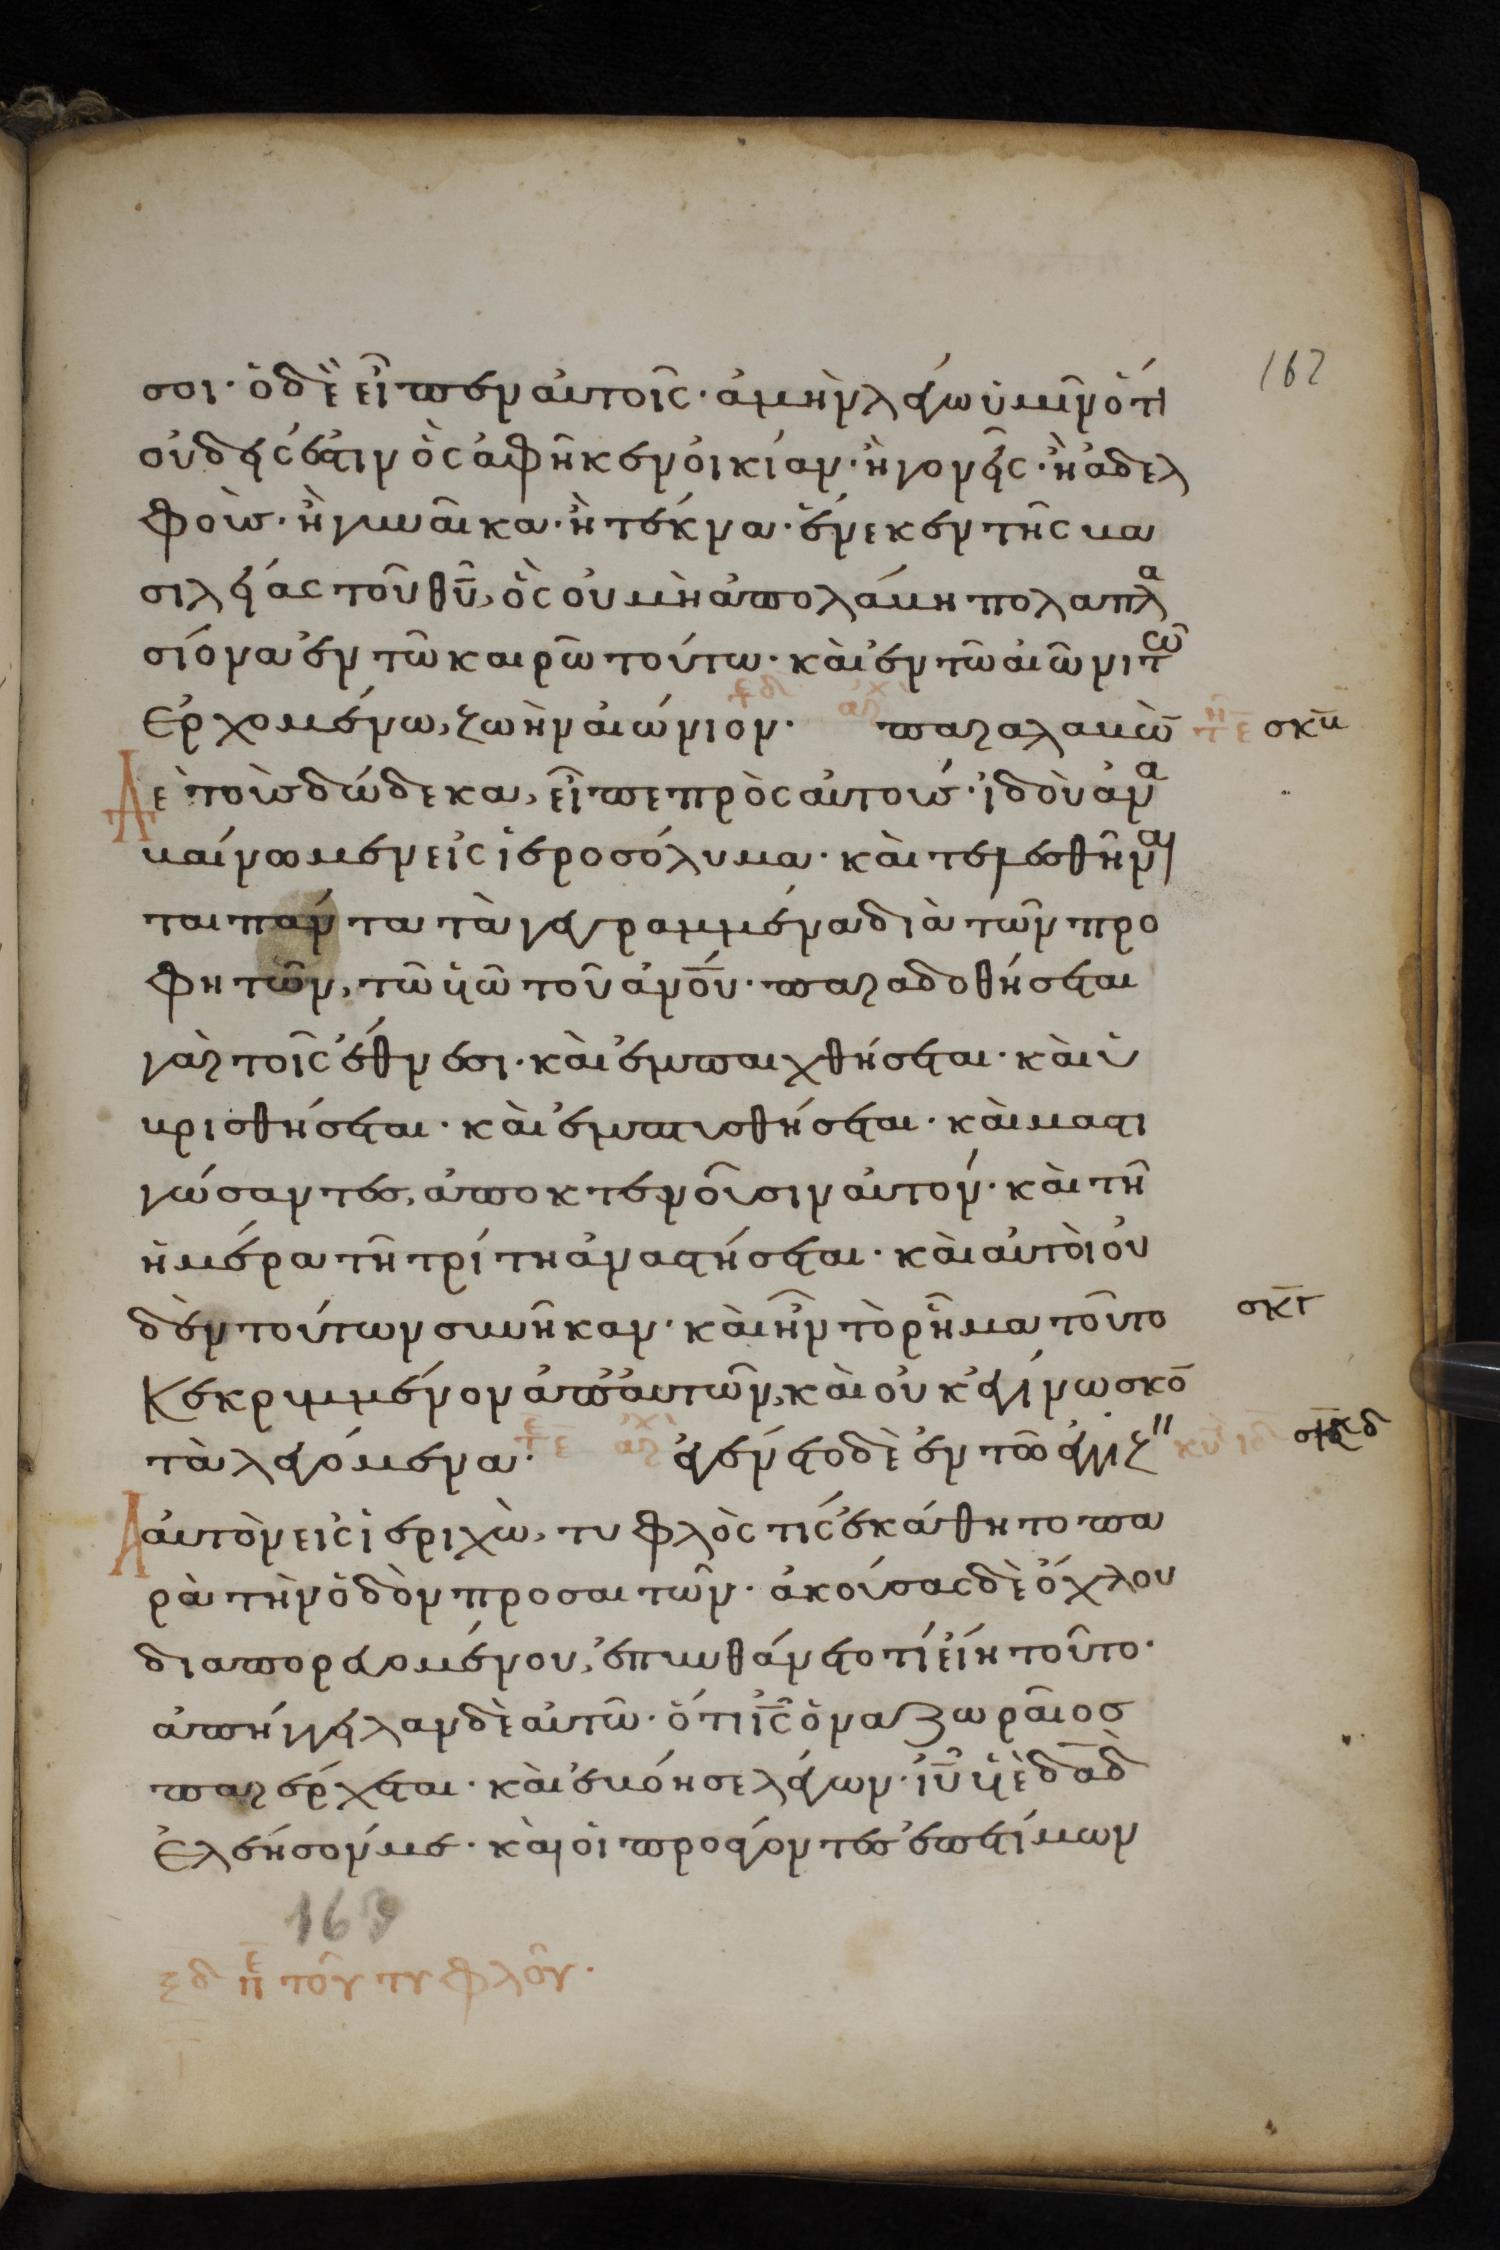 162
σοι· ὁ δὲ εἶπεν αὐτοῖς· ἀμὴν λέγω ὑμῖν ὅτι
οὐδείς ἐστιν ὃς ἀφῆκεν οἰκίαν· ἢ γονεῖς· ἢ ἀδελ
φοὺς· ἢ γυναῖκα· ἢ τέκνα· ἕνεκεν τῆς βα
σιλείας τοῦ θῡ, ὃς οὐ μὴ ἀπολάβη πολαπλα
σίονα ἐν τῶ καιρῶ τούτω· καὶ ἐν τῶ αἰῶνι τῶ
ἐρχομένω, ζωὴν αἰώνιον· παραλαβὼ̄ σκβ
ε τοὺς δώδεκα, εἶπε πρὸς αὐτούς· ἰδοὺ ἀνα
βαίνωμεν εἰς ἱεροσόλυμα· καὶ τελεσθήναι
ται πάντα τὰ γεγραμμένα διὰ τῶν προ
φητῶν, τῶ υἱῶ τοῦ ἀνο̄υ· παραδοθήσεται
γὰρ τοῖς ἔθνεσι· καὶ ἐμπαιχθήσεται· καὶ ὑ
βρισθήσεται· καὶ ἐμπτυσθήσεται· καὶ μαστι
γώσαντες, ἀποκτενοῦσιν αὐτόν· καὶ τῆ
ἡμέρα τῆ τρίτη ἀναστήσεται· καὶ αὐτοὶ οὐ
δὲν τούτων συνῆκαν· καὶ ἦν τὸ ρῆμα τοῦτο σκγ
κεκρυμμένον ἀπ' αὐτῶν, καὶ οὐκ ἐγίνωσκο̄
τὰ λεγόμενα· ἐγένετο δὲ ἐν τῶ ἐγγίζ" σκδ
αὐτὸν εἰς ἱεριχὼ, τυφλὸς τίς ἐκάθητο πα
ρὰ τὴν ὁδὸν προσαιτῶν· ἀκούσας δὲ ὄχλου
διαπορευομένου, ἐπυνθάνετο τί εἴη τοῦτο·
ἀπήγγειλαν δὲ αὐτῶ· ὅτι ῑς ὁ ναζωραῖος
παρέρχεται· καὶ ἐβόησε λέγων· ῑῡ υἱὲ δᾱδ
ἐλέησόν με· καὶ οἱ προάγοντες ἐπετίμων
163
ξδ πε τοῦ τυφλοῦ·